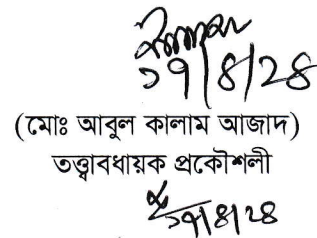 ১৭/৪/২৪
(মোঃ আবুল কালাম আজাদ)
তত্ত্বাবধায়ক প্রকৌশলী
১৭/৪/২৪